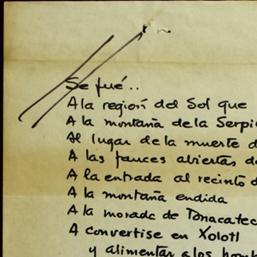 Se fué..
A la región del Sol que
A la montaña de la Serpi
Al lugar de la muerte d
A las fauces abiertas d
A la entrada al recinto d
A la montaña endida
A la morada de Tonacatec
A convertise en Xolotl
y alimentar a los homb